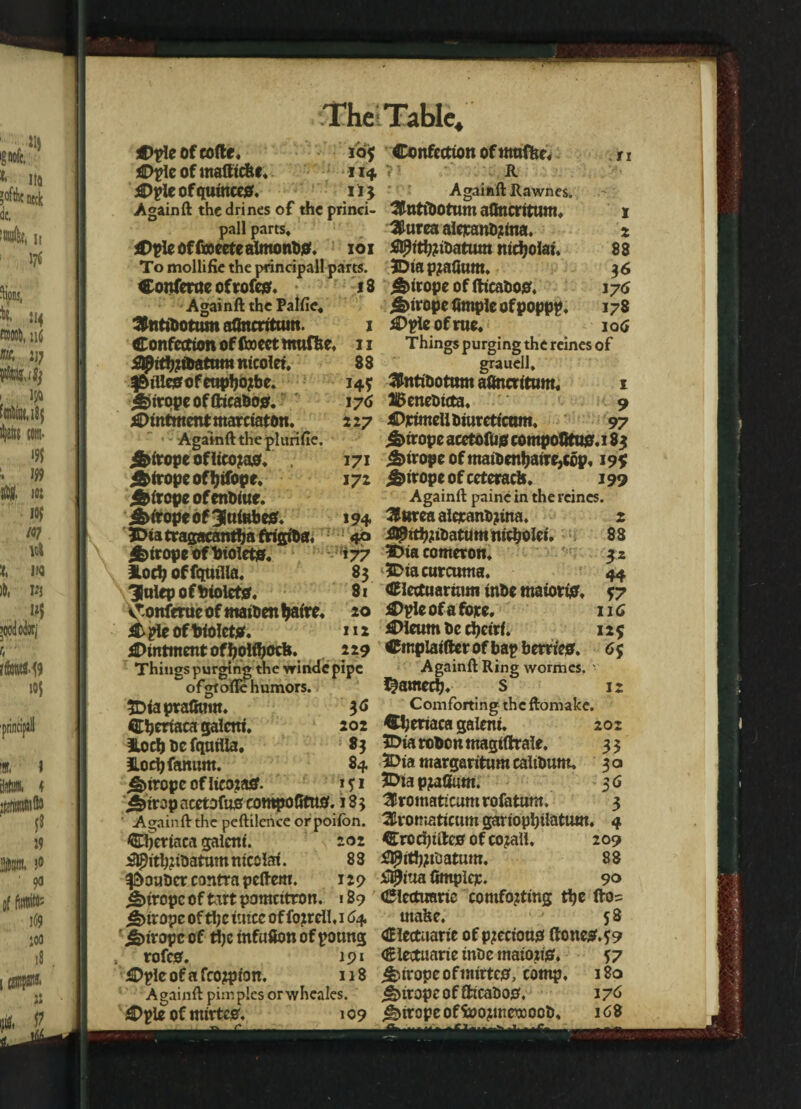 The Table.
Oyle of coste. 105
Oyle of masticke. 114
Oyle of quinces. 113
Against the drines of the princi-
pall parts.
Oyle of sweete almonds. 101
To mollifie the principall parts.
Conserue of roses. 18
Against the Palsie.
Antidotum asincritum. 1
Confection of sweet muske. 11
Mithridatum nicolei. 88
Pilles of euphorbe. 145
Sirope of sticados. 176
Ointment marciaton. 227
Against the plurisie.
Sirope of licoras. 171
Sirope of hisope. 172
Sirope of endiue.
Sirope of Iuiubes. 194
Dia tragacantha frigida. 40
Sirope of violets. 177
Loch of squilla. 83
Iulep of violets. 81
Conserue of maiden haire. 20
Oyle of violets. 112
Ointment of holihock. 229
Things purging the winde pipe
of grosse humors.
Dia prassium. 36
Theriaca galeni. 202
Loch de squilla. 83
Loch sanum. 84
Sirope of licoras. 151
Sirop acetosus compositus. 183
Against the pestilence or poison.
Theriaca galeni. 202
Mithridatum nicolai. 88
Pouder contra pestem. 129
Sirope of tart pomcitron. 189
Sirope of the iuice of sorrell. 164
Sirope of the infusion of young
roses. 191
Oyle of a scorpion. 118
Against pimples or wheales.
Oyle of mirtes. 109
Confection of muske. 11
R
Against Rawnes.
Antidotum asincritum. 1
Aurea alexandrina. 2
Mithridatum nicholai. 88
Dia prasium. 36
Sirope of sticados. 176
Sirope simple of poppy. 178
Oyle of rue. 106
Things purging the reines of
grauell.
Antidotum asincritum. 1
Benedicta. 9
Oximell diureticum. 97
Sirope acetosus compositus. 183
Sirope of maidenhaire, cōp. 195
Sirope of ceterack. 199
Against paine in the reines.
Aurea alexandrina. 2
Mithridatum nicholei. 88
Dia comeron. 32
Dia curcuma. 44
Electuarium inde maioris. 57
Oyle of a foxe. 116
Oleum de cheiri. 125
Emplaister of bay berries. 65
Against Ring wormes.
Hamech. 12
S
Comforting the stomake.
Theriaca galeni. 202
Dia rodon magistrale. 33
Dia margaritum calidum. 30
Dia prasium. 36
Aromaticum rosatum. 3
Aromaticum gariophilatum. 4
Trochiskes of corall. 209
Mithridatum. 88
Miua simplex. 90
Electuarie comforting the sto-
make. 58
Electuarie of precious stones. 59
Electuarie inde maioris. 57
Sirope of mirtes, comp. 180
Sirope of sticados. 176
Sirope of wormewood. 168